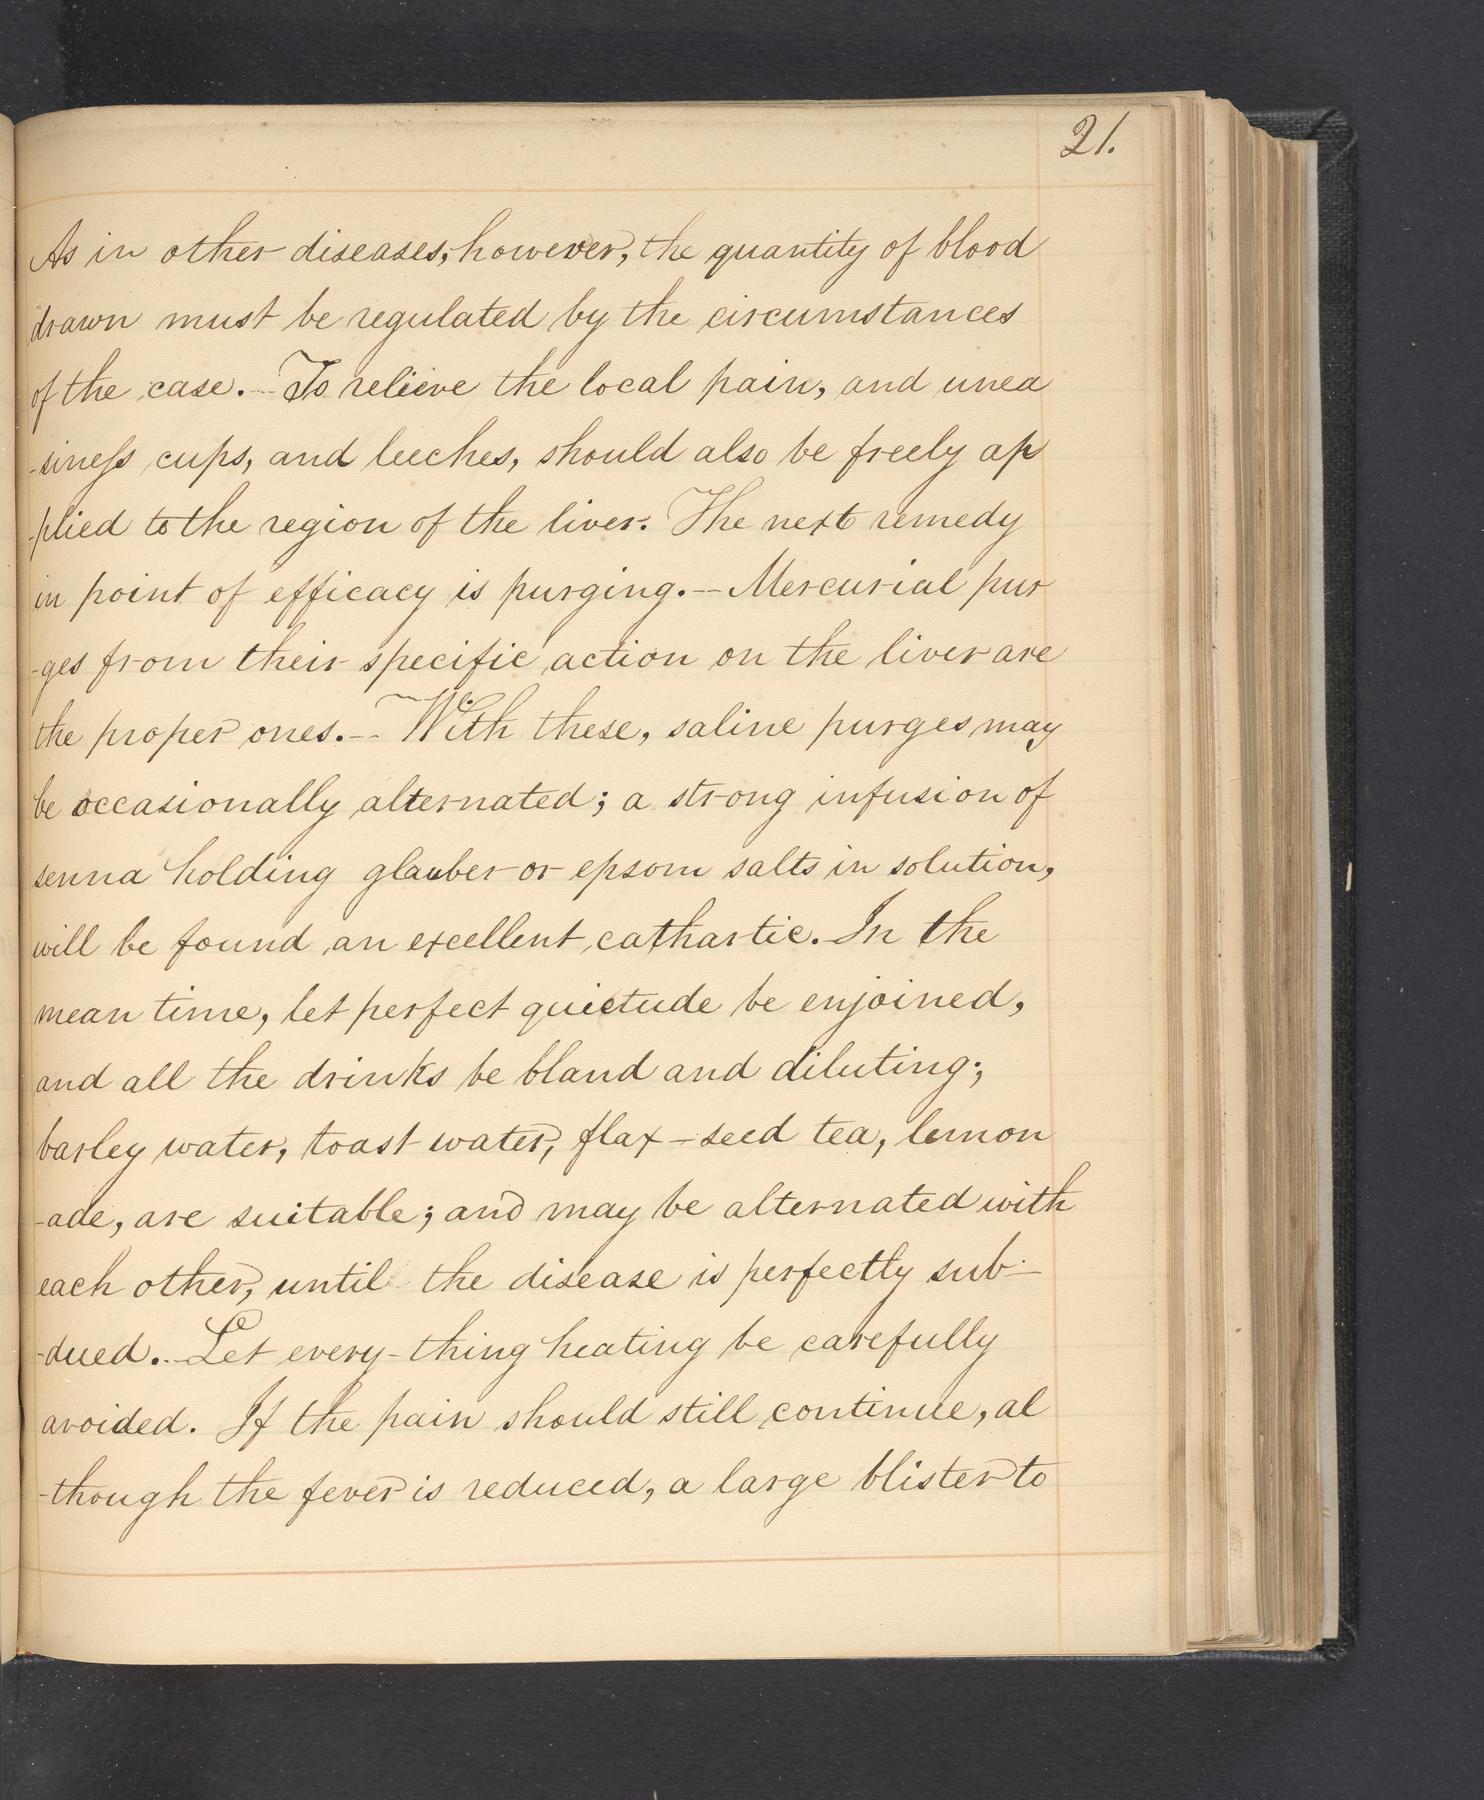 21.
As in other diseases, however, the quantity of blood
drawn must be regulated by the circumstances
of the case. -- To relieve the local pain, and unea
-siness cups, and leeches, should also be freely ap
-plied to the region of the liver. The next remedy
in point of efficacy is purging. -- Mercurial pur
-ges from their specific action on the liver are
the proper ones. -- With these, saline purges may
be occasionally alternated; a strong infusion of
senna holding glauber or epsom salts in solution,
will be found an excellent cathartic. In the
mean time, let perfect quietude be enjoined,
and all the drinks be bland and diluting;
barley water, toast water, flax-seed tea, lemon
-ade, are suitable; and may be alternated with
each other, until the disease is perfectly sub-
-dued. -- Let every-thing heating be carefully
avoided. If the pain should still continue, al
-though the fever is reduced, a large blister to